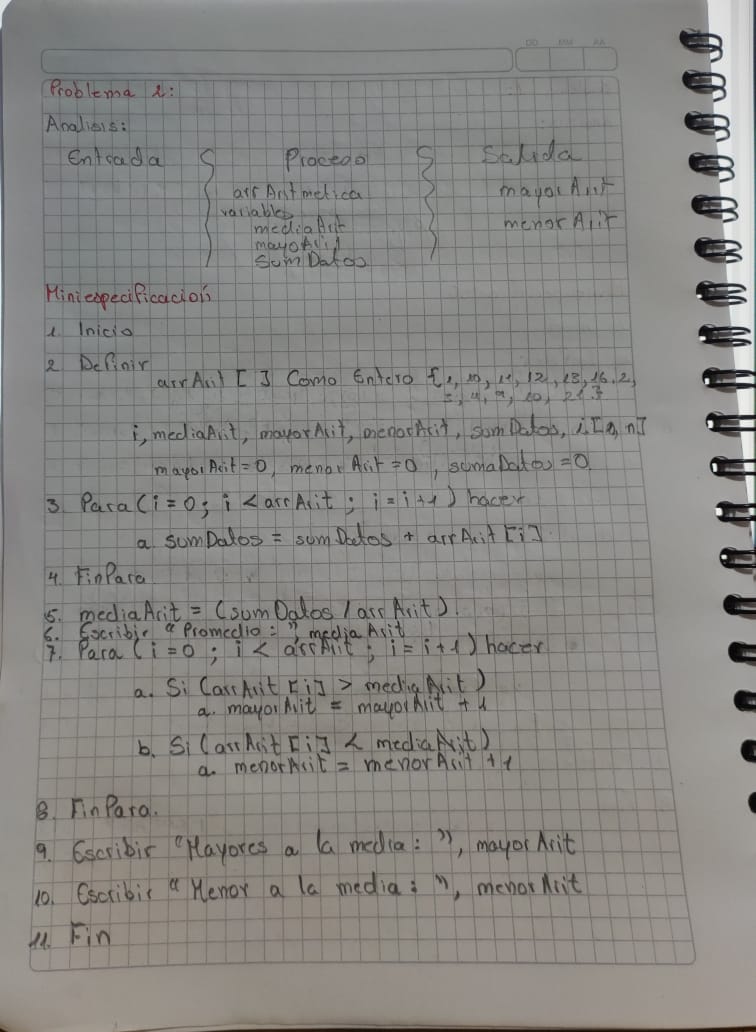 DD MM AA
Problema 2:
Analisis:
Entrada Proceso Salida
arrAritmetica mayorArit
variables menorArit
mediaArit
mayoArit
SumDatos
Miniespecificación
1. Inicio
2 Definir
arrArit [ ] Como Entero {1, 10, 11, 12, 13, 16, 2,
10, 21}
i, mediaArit, mayorArit, menorArit, sumDatos,
mayorArit = 0, menorArit = 0, sumaDatos = 0
3. Para (i = 0; i < arrArit ; i = i + 1) hacer
a. sumDatos = sumDatos + arrArit [i]
4. FinPara
5. mediaArit = (sumDatos / arrArit).
6. Escribir "Promedio: ", mediaArit
7. Para (i = 0 ; i < arrArit ; i = i + 1) hacer
a. Si (arrArit [i] > mediaArit)
a. mayorArit = mayorArit + 1
b. Si (arrArit [i] < mediaArit)
a. menorArit = menorArit + 1
8. FinPara.
9. Escribir "Mayores a la media: ", mayorArit
10. Escribir "Menor a la media: ", menorArit
11. Fin